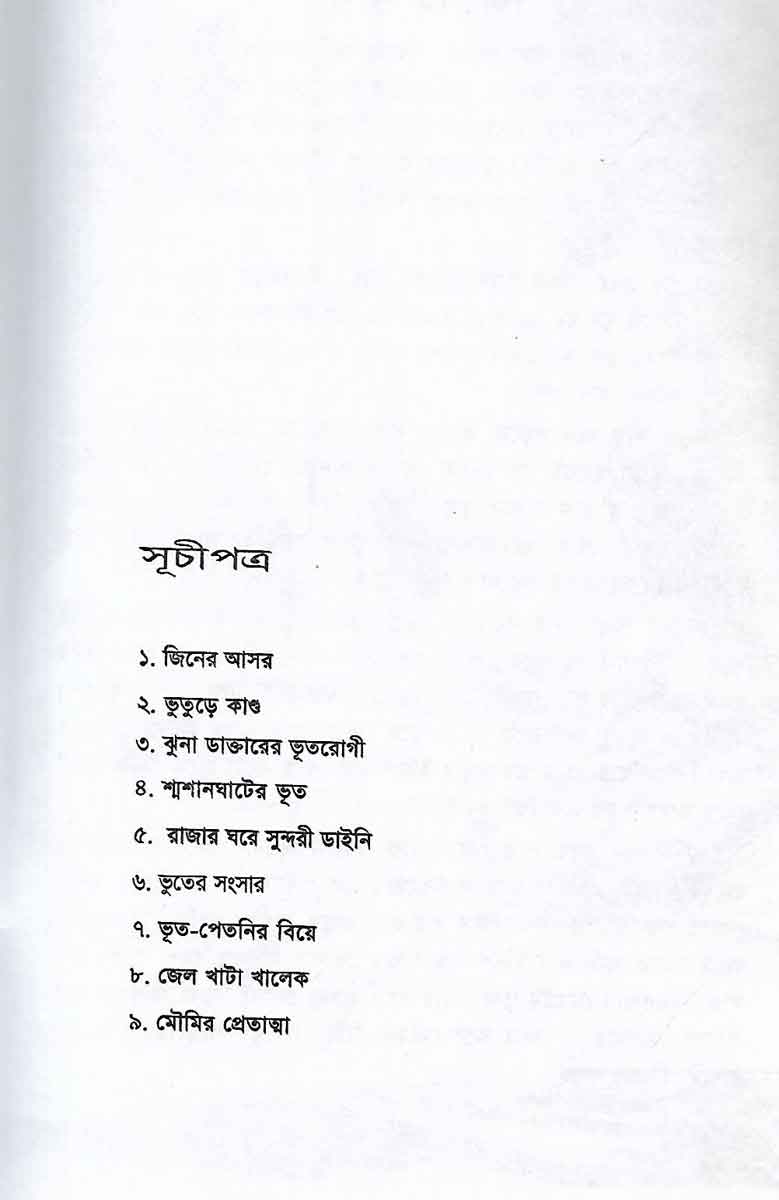 সূচীপত্র
১. জিনের আসর
২. ভুতুড়ে কাণ্ড
৩. ঝুনা ডাক্তারের ভূতরোগী
৪. শ্মশানঘাটের ভূত
৫. রাজার ঘরে সুন্দরী ডাইনি
৬. ভুতের সংসার
৭. ভূত-পেতনির বিয়ে
৮. জেল খাটা খালেক
৯. মৌমির প্রেতাত্মা